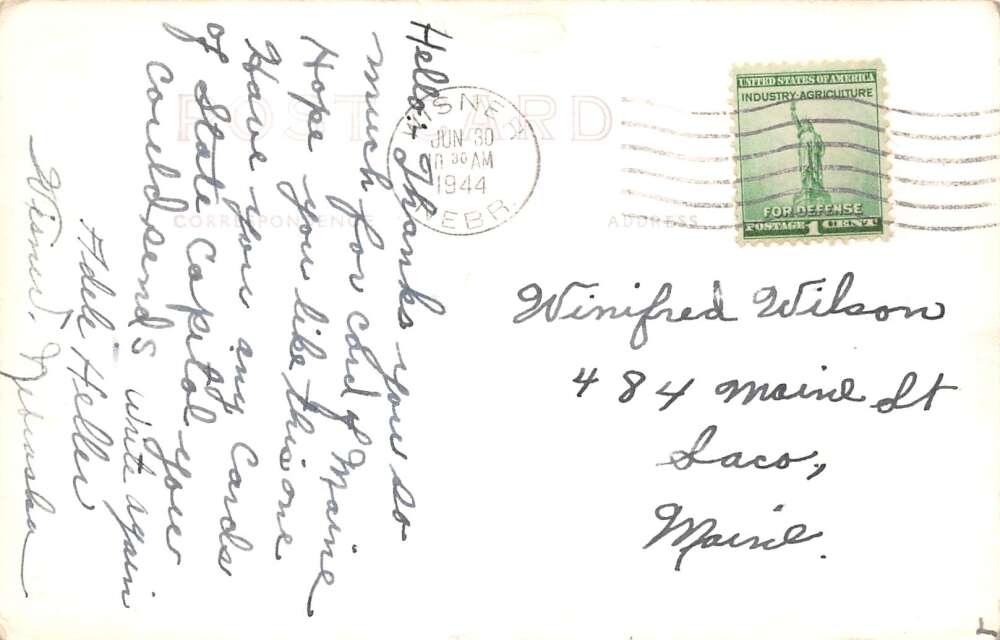 POST CARD
CORRESPONDENCE
ADDRESS
WISNER
JUN 30
10 30 AM
1944
NEBR.
UNITED STATES OF AMERICA
INDUSTRY-AGRICULTURE
FOR DEFENSE
POSTAGE 1 CENT
Hello:- Thanks you so
much for card of Maine
Hope you like this one
Have you any Cards
of State Capitol your
could send? Write again
Adele Heller
Wisner, Nebraska
Winifred Wilson
484 Maine St
Saco,
Maine.